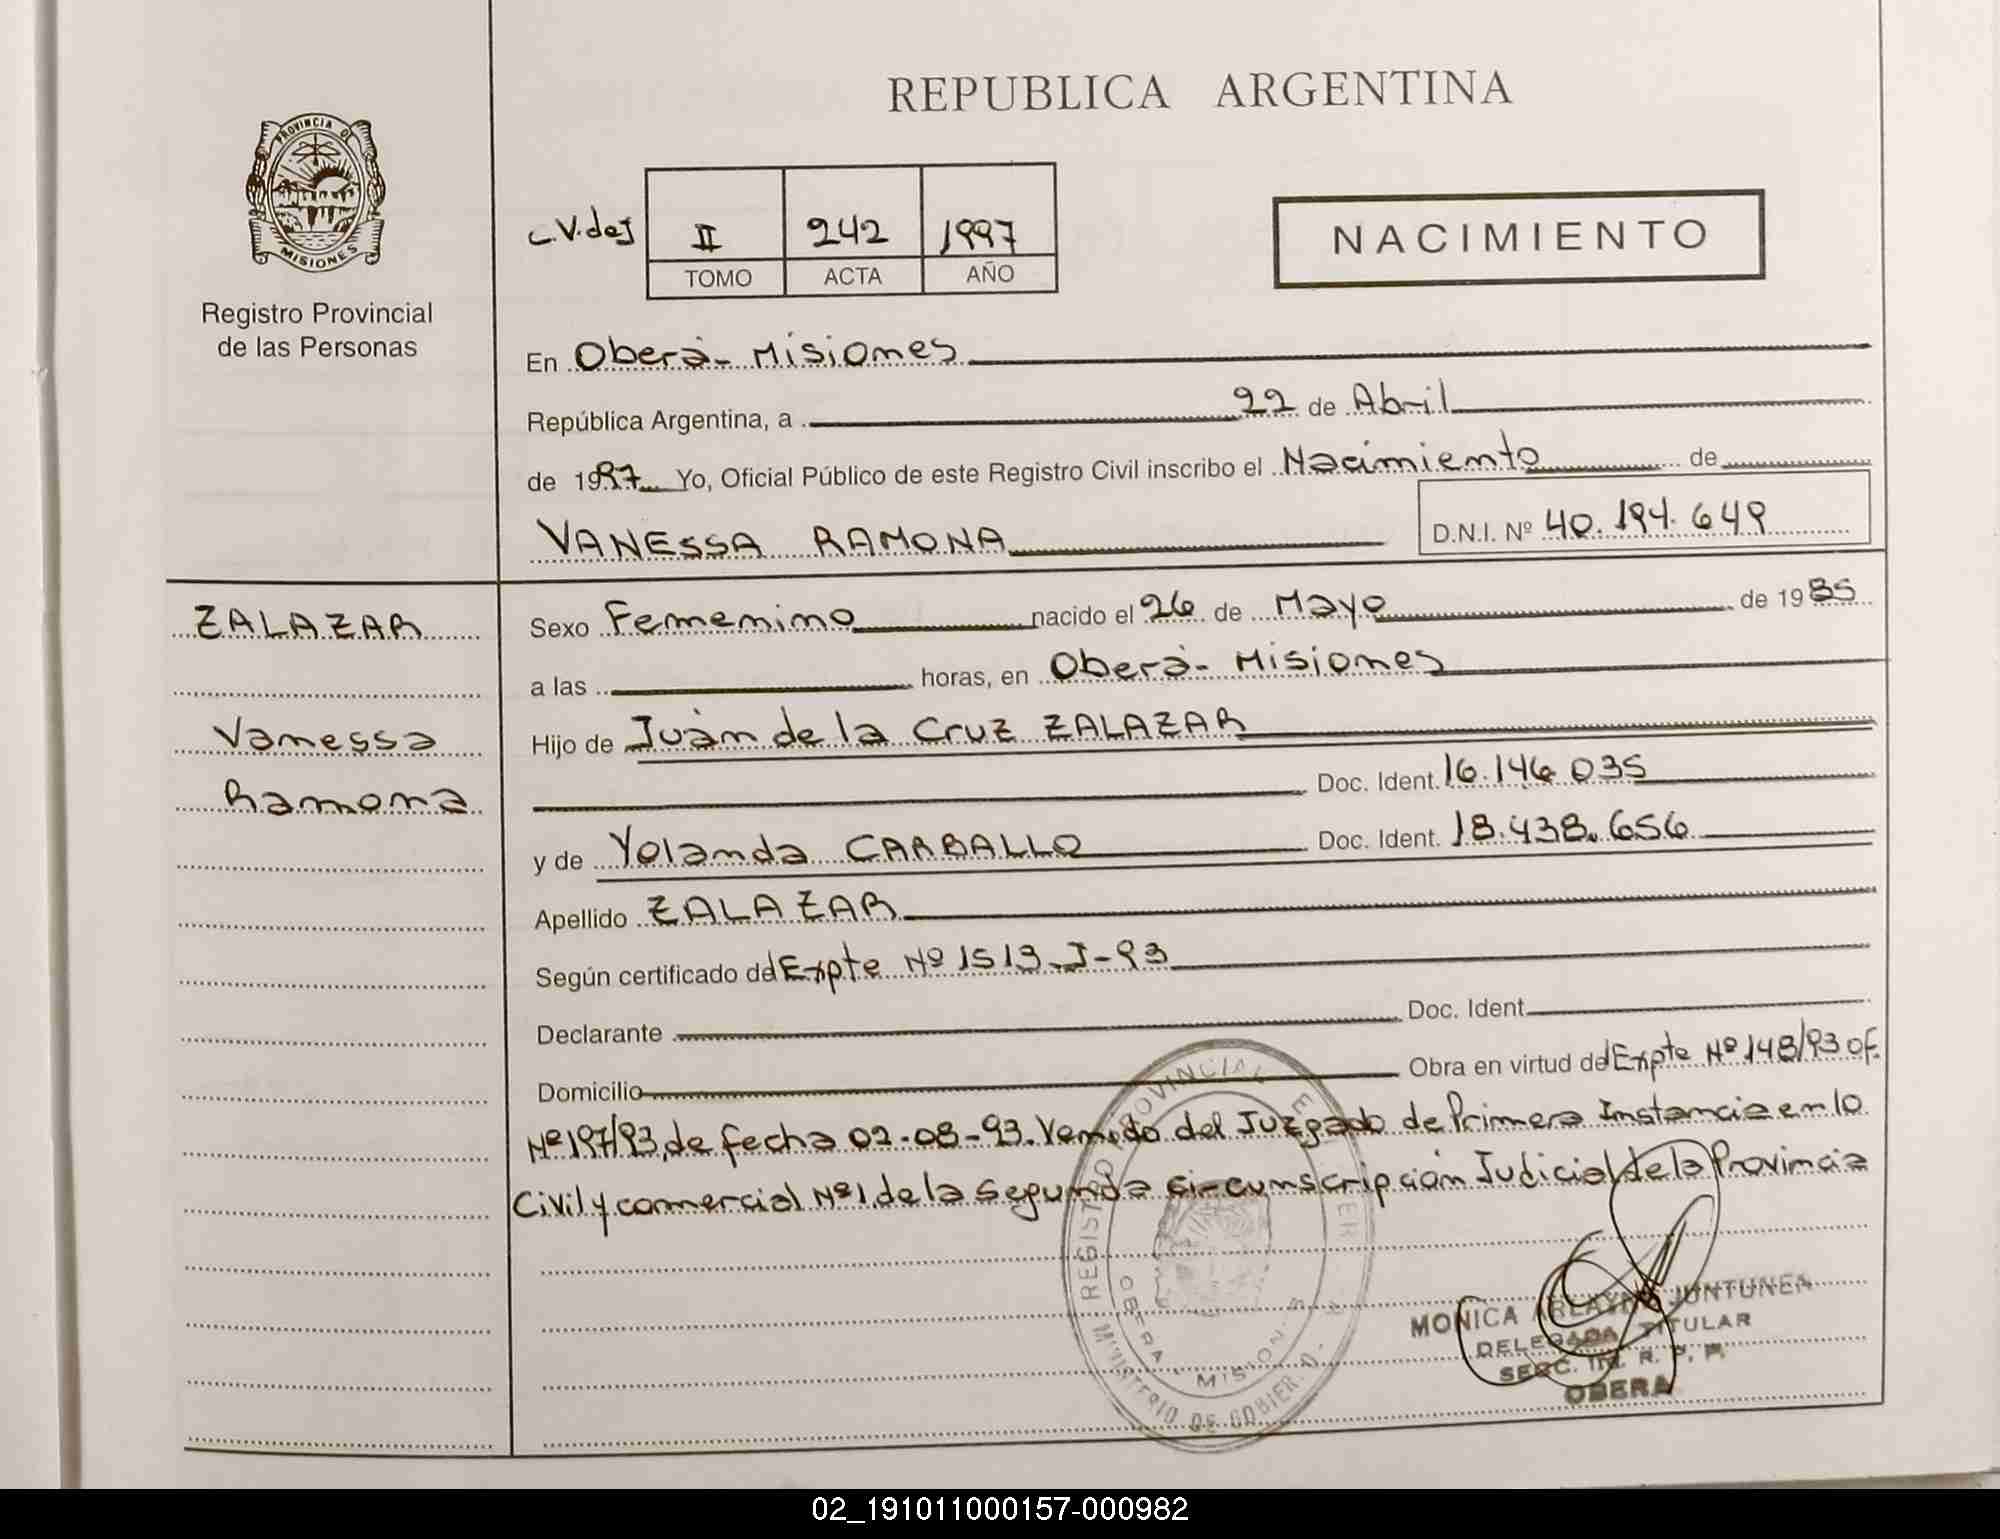 REPUBLICA ARGENTINA
PROVINCIA DE
MISIONES
Registro Provincial
de las Personas
II 242 1997
TOMO ACTA AÑO
NACIMIENTO
En Oberá- Misiones
República Argentina, a 22 de Abril
de 1997 Yo, Oficial Público de este Registro Civil inscribo el Nacimiento de
VANESSA RAMONA D.N.I. Nº 40.194.649
ZALAZAR
Vanessa
Ramona
Sexo Femenino nacido el 26 de Mayo de 1985
a las horas, en Oberá- Misiones
Hijo de Juan de la Cruz ZALAZAR
Doc. Ident. 16.146.035
y de Yolanda CARBALLO Doc. Ident. 18.438.656
Apellido ZALAZAR
Según certificado de Expte Nº 1513-J-93
Declarante Doc. Ident.
Domicilio Obra en virtud del Expte Nº 148/93 of.
Nº 197/93, de fecha 02-08-93. Venido del Juzgado de Primera Instancia en lo
Civil y comercial Nº1, de la Segunda Circunscripción Judicial de la Provincia
REGISTRO PROVINCIAL
OBERA MISION
MINISTERIO DE GOBIER
MONICA ARLAYNE JUNTUNEN
DELEGADA TITULAR
R. P. P.
OBERA
02_191011000157-000982